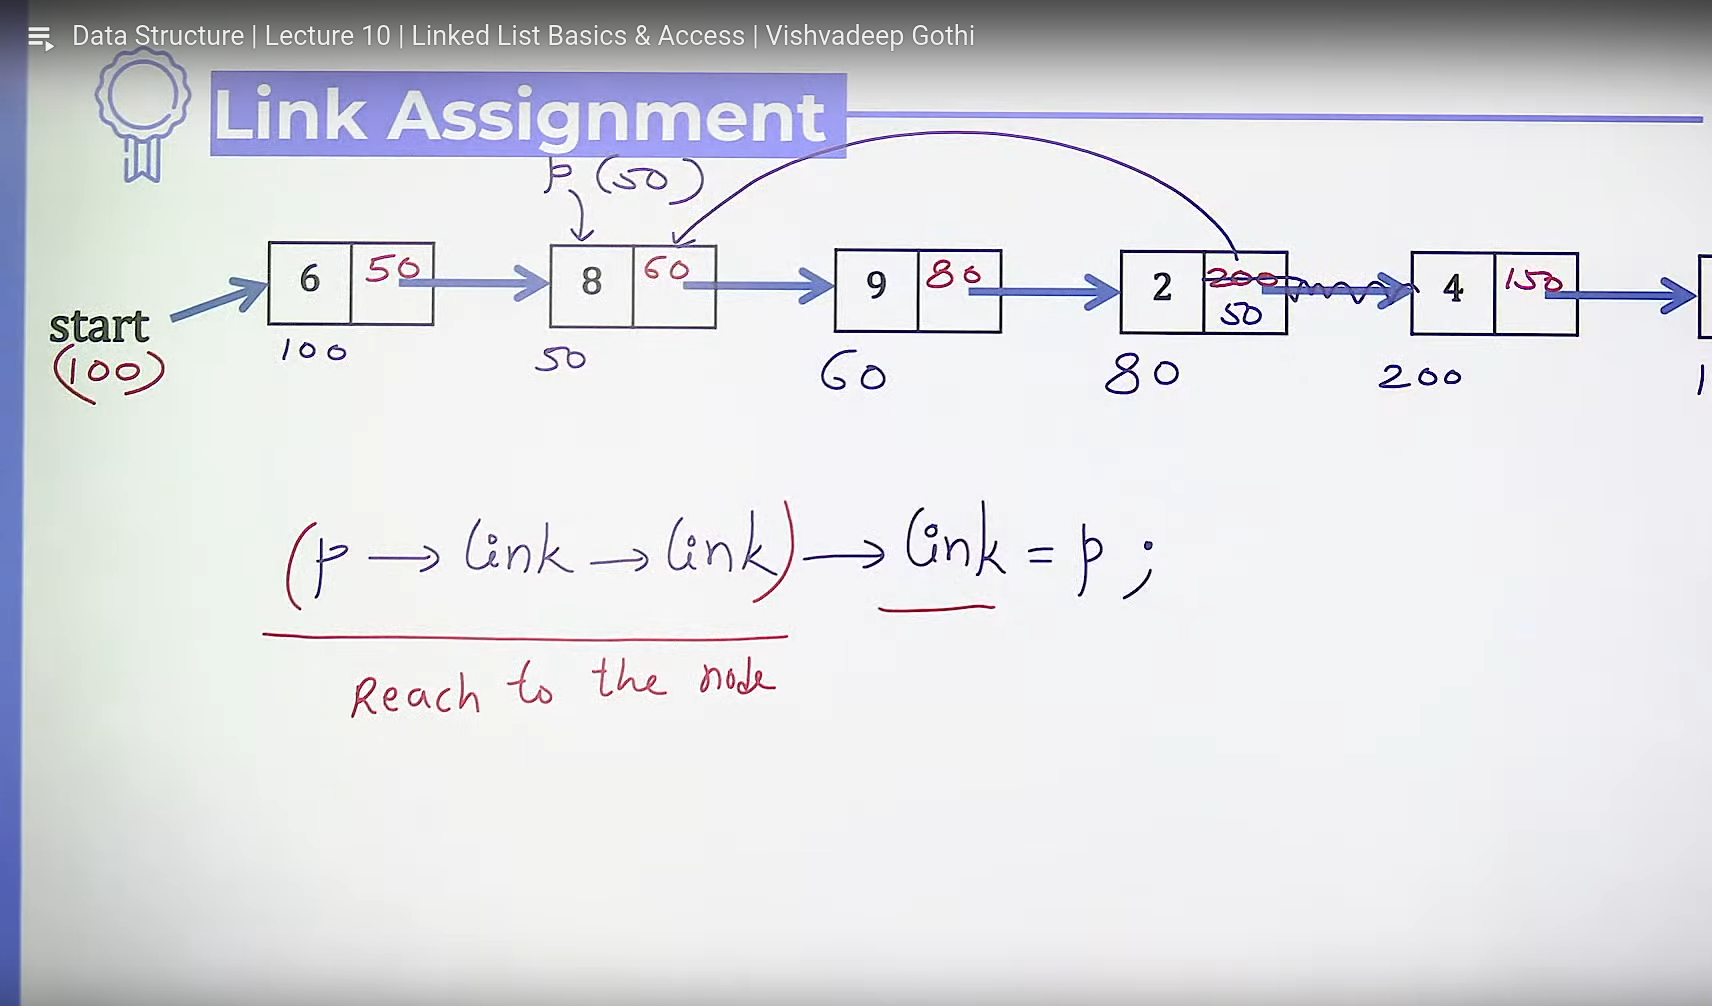 Data Structure | Lecture 10 | Linked List Basics & Access | Vishvadeep Gothi
Link Assignment
p (50)
start
(100)
6 50
8 60
9 80
2 200
50
4 150
100
50
60
80
200
1
(p → link → link) → link = p ;
Reach to the node